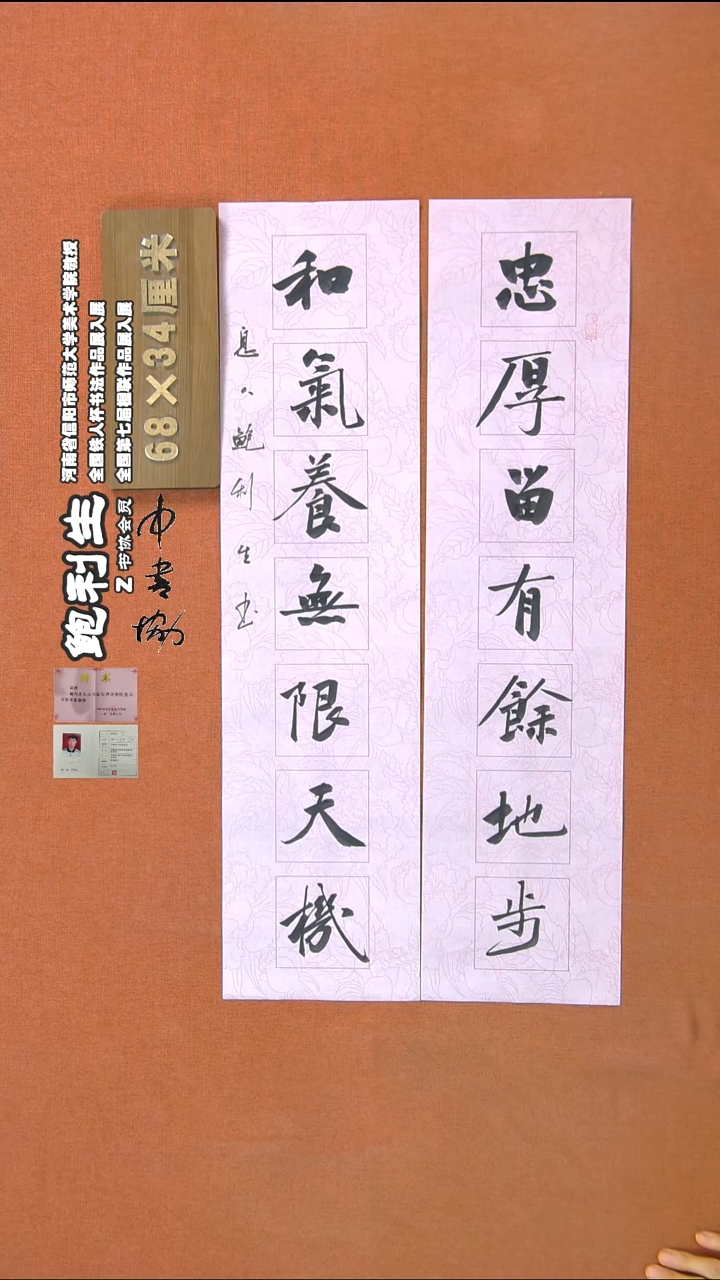 忠厚留有餘地步
和氣養無限天機
鮑利生书
68×34厘米
河南省信阳市师范大学美术学院教授
全国铁人杯书法作品展入展
全国第七届楹联作品展入展
鲍利生
Z书协会员
中书协